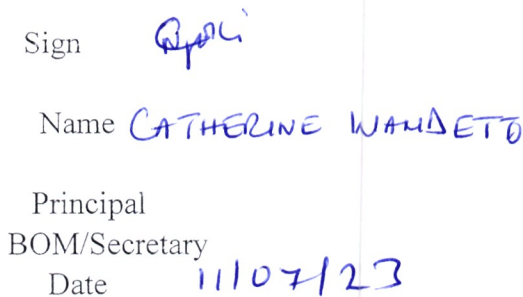 Sign
Name CATHERINE WANDETO
Principal
BOM/Secretary
Date 11/07/23